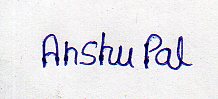 Anshu Pal